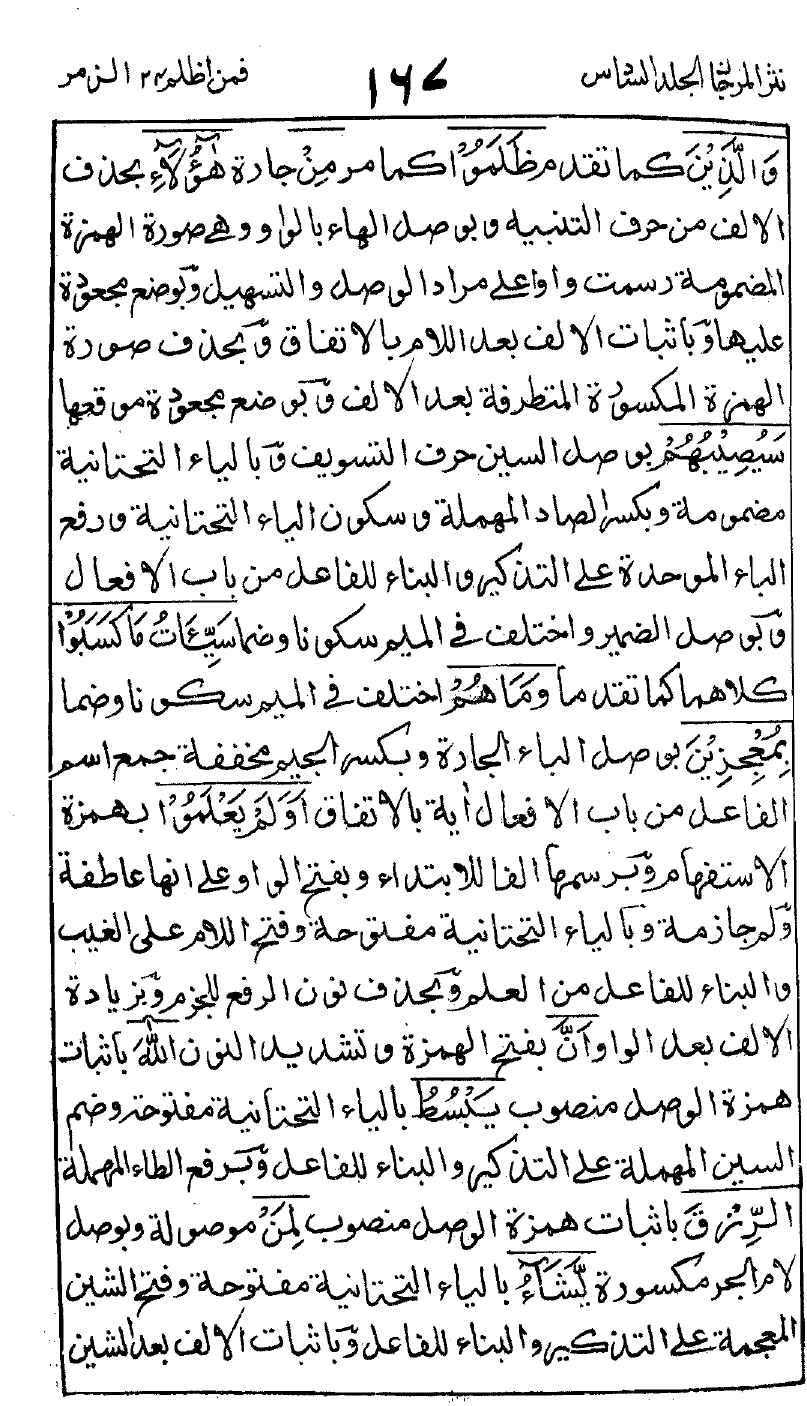 نثر المرجان الجلد السادس ١٦٧ فمن اظلم ٢٤ الزمر
وَالَّذِيْنَ كما تقدم ظَلَمُوْا كما مر مِنْ جارة هٰٓؤُلَآءِ بحذف
الالف من حرف التنبيه وبوصل الهاء بالواو وهي صورة الهمزة
المضمومة رسمت واوا على مراد الوصل والتسهيل وبوضع مجعودة
عليها وباثبات الالف بعد اللام بالاتفاق وبحذف صورة
الهمزة المكسورة المتطرفة بعد الالف وبوضع مجعودة موقعها
سَيُصِيْبُهُمْ بوصل السين حرف التسويف وبالياء التحتانية
مضمومة وبكسر الصاد المهملة وسكون الياء التحتانية ورفع
الباء الموحدة على التذكير والبناء للفاعل من باب الافعال
وبوصل الضمير واختلف في الميم سكونا وضما سَيِّئَاتُ مَا كَسَبُوْا
كلاهما كما تقدما وَمَا هُمْ اختلف في الميم سكونا وضما
بِمُعْجِزِيْنَ بوصل الباء الجارة وبكسر الجيم مخففة جمع اسم
الفاعل من باب الافعال اٰية بالاتفاق اَوَلَمْ يَعْلَمُوْا بهمزة
الاستفهام وبرسمها الفا للابتداء وبفتح الواو على انها عاطفة
ولم جازمة وبالياء التحتانية مفتوحة وفتح اللام على الغيب
والبناء للفاعل من العلم وبحذف نون الرفع للجزم وبزيادة
الالف بعد الواو اَنَّ بفتح الهمزة وتشديد النون اللّٰهَ باثبات
همزة الوصل منصوب يَبْسُطُ بالياء التحتانية مفتوحة وضم
السين المهملة على التذكير والبناء للفاعل وبرفع الطاء المهملة
الرِّزْقَ باثبات همزة الوصل منصوب لِمَنْ موصولة وبوصل
لام الجر مكسورة يَّشَآءُ بالياء التحتانية مفتوحة وفتح الشين
المعجمة على التذكير والبناء للفاعل وباثبات الالف بعد الشين